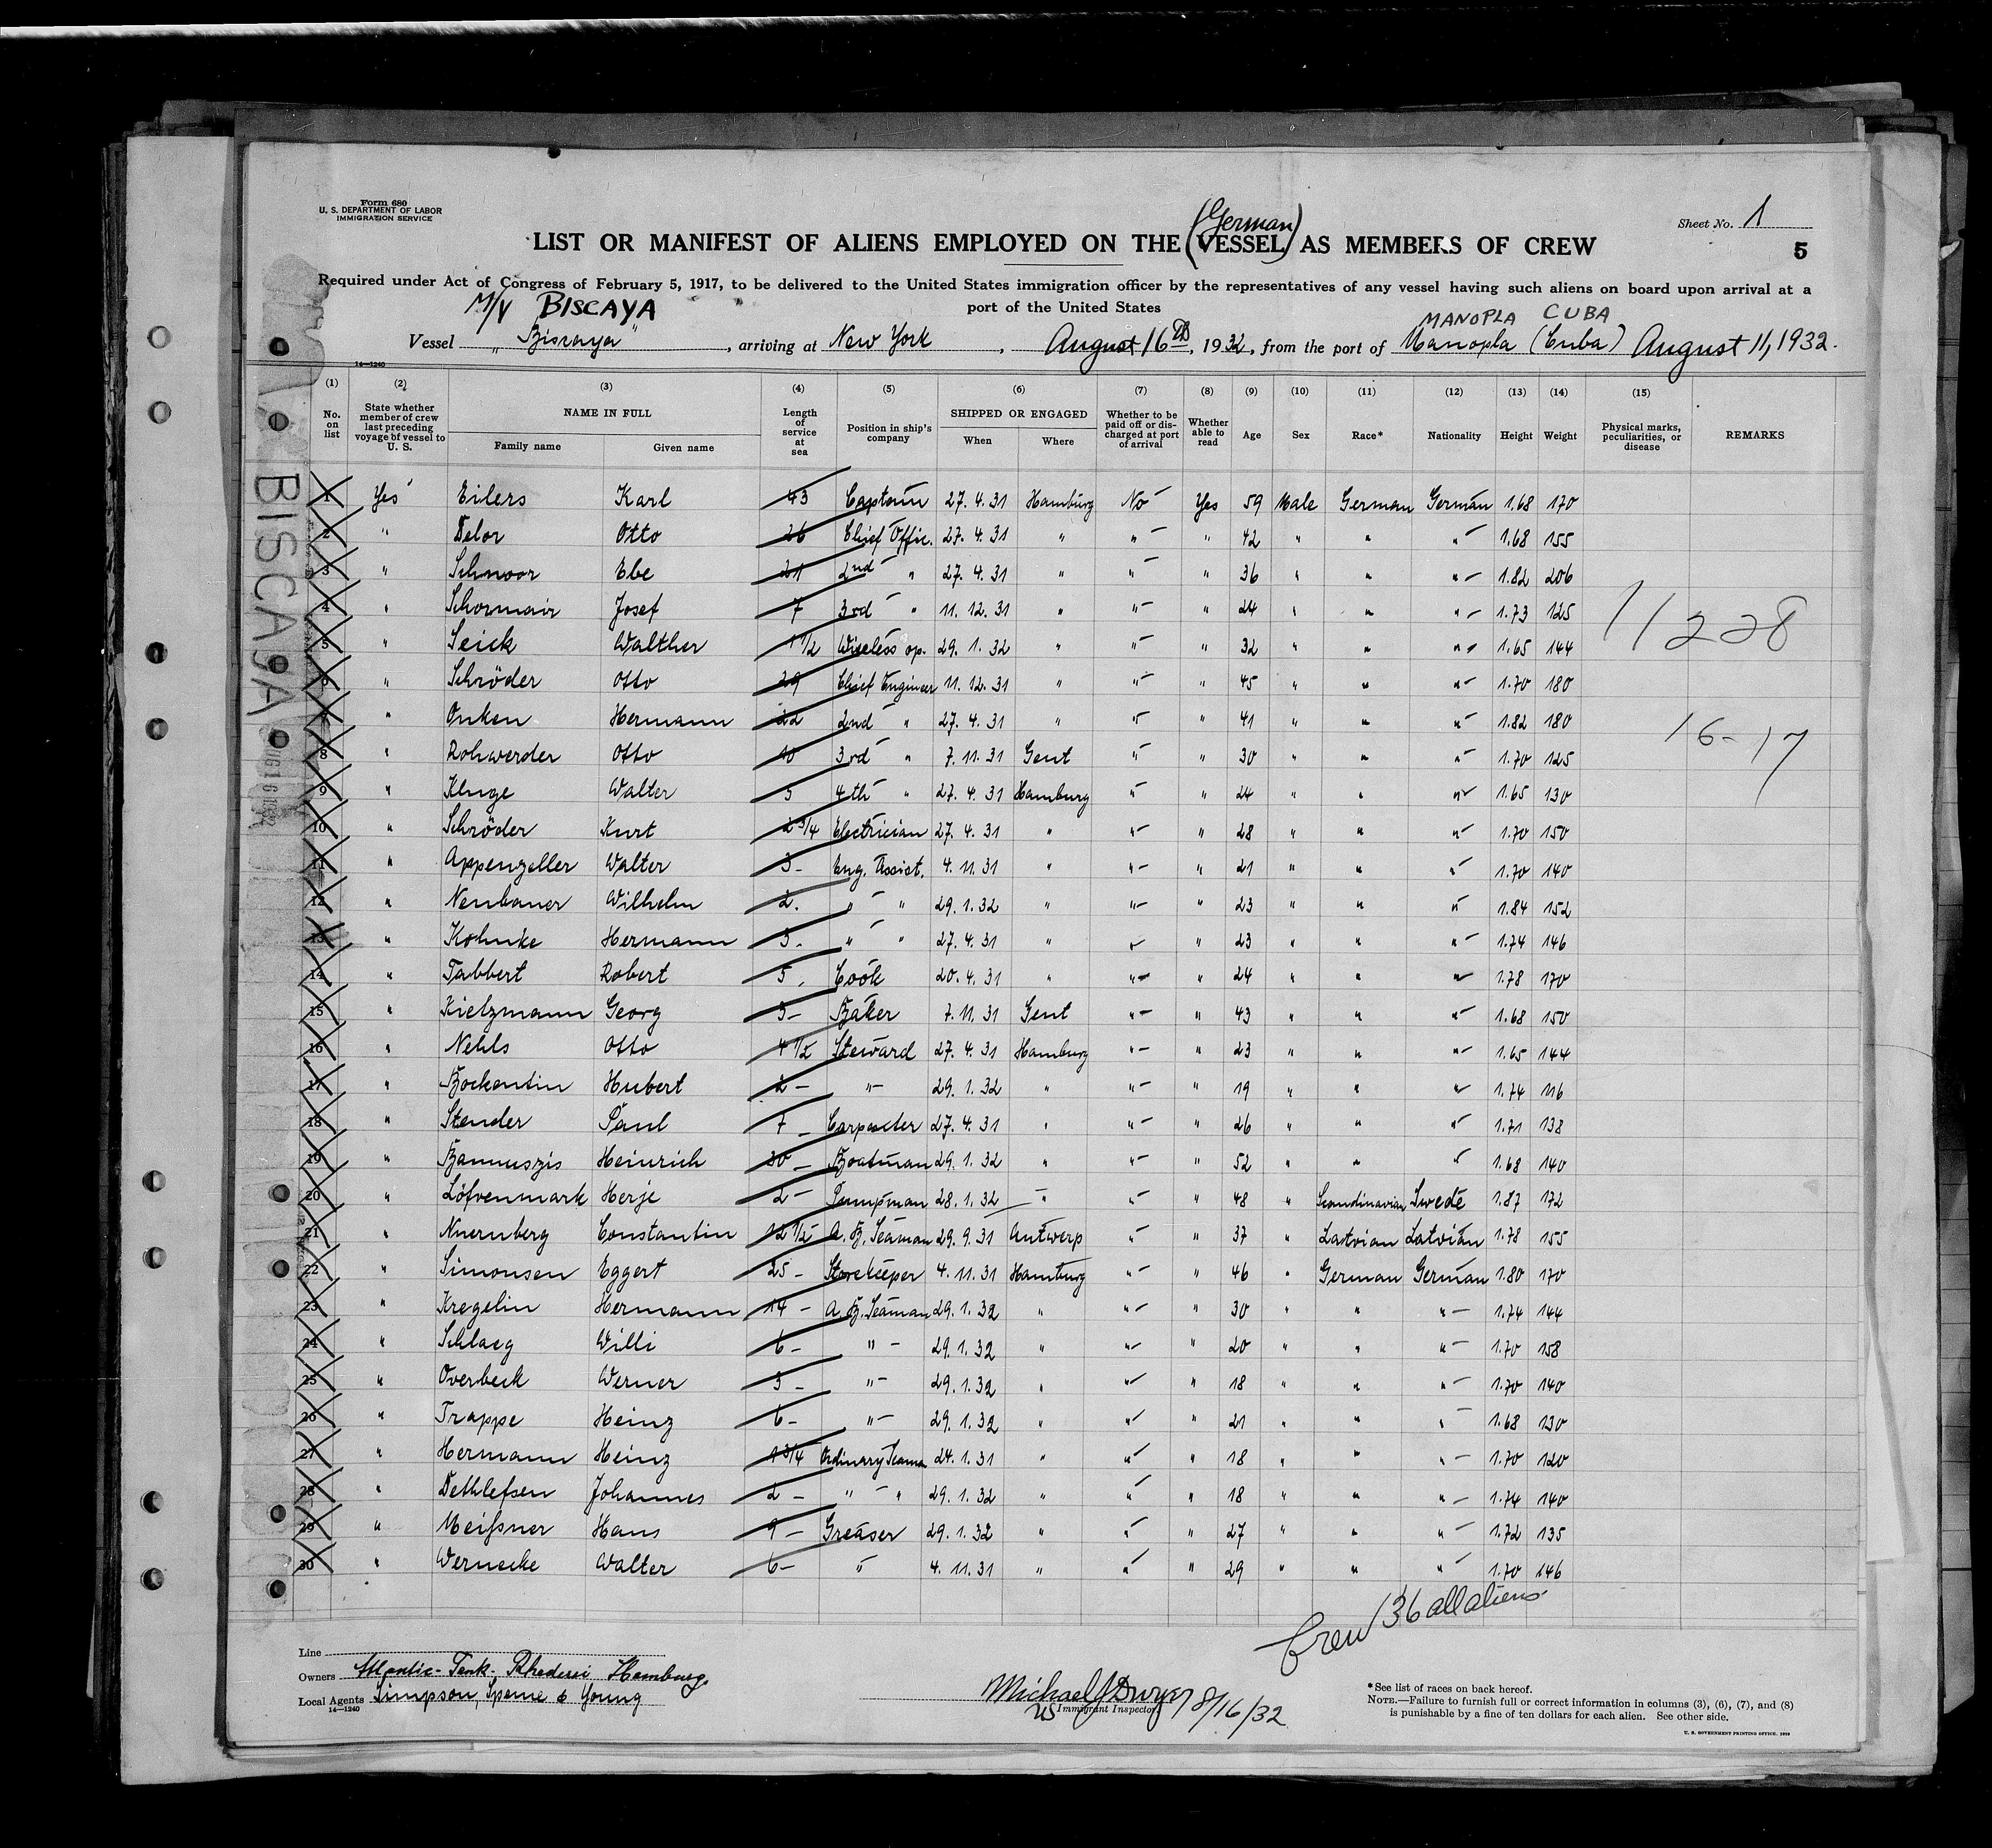 Form 680
U. S. DEPARTMENT OF LABOR
IMMIGRATION SERVICE
Sheet No. 1
(German)
LIST OR MANIFEST OF ALIENS EMPLOYED ON THE (VESSEL) AS MEMBERS OF CREW
5
Required under Act of Congress of February 5, 1917, to be delivered to the United States immigration officer by the representatives of any vessel having such aliens on board upon arrival at a
port of the United States
M/V BISCAYA
MANOPLA CUBA
Vessel "Biscaya", arriving at New York, August 16th, 1932, from the port of Manopla (Cuba) August 11, 1932.
14—1240
(1) (2) (3) (4) (5) (6) (7) (8) (9) (10) (11) (12) (13) (14) (15)
No. on list State whether member of crew last preceding voyage of vessel to U. S. NAME IN FULL Family name Given name Length of service at sea Position in ship's company SHIPPED OR ENGAGED When Where Whether to be paid off or discharged at port of arrival Whether able to read Age Sex Race* Nationality Height Weight Physical marks, peculiarities, or disease REMARKS
BISCAYA
AUG 16 1932
1 Yes Eilers Karl 43 Captain 27. 4. 31 Hamburg No Yes 59 Male German German 1.68 170
2 " Delor Otto 26 Chief Offic. 27. 4. 31 " " " 42 " " " 1.68 155
3 " Schnoor Ebe 21 2nd " 27. 4. 31 " " " 36 " " " 1.82 206
4 " Schormair Josef 7 3rd " 11. 12. 31 " " " 24 " " " 1.73 125
11228
5 " Seick Walther 1 1/2 Wireless op. 29. 1. 32 " " " 32 " " " 1.65 144
6 " Schröder Otto 29 Chief Engineer 11. 12. 31 " " " 45 " " " 1.70 180
7 " Onken Hermann 22 2nd " 27. 4. 31 " " " 41 " " " 1.82 180
16-17
8 " Rohwerder Otto 10 3rd " 7. 11. 31 Gent " " 30 " " " 1.70 125
9 " Kluge Walter 5 4th " 27. 4. 31 Hamburg " " 24 " " " 1.65 130
10 " Schröder Kurt 2 3/4 Electrician 27. 4. 31 " " " 28 " " " 1.70 150
11 " Appenzeller Walter 3 - Eng. Assist. 4. 11. 31 " " " 21 " " " 1.70 140
12 " Neubauer Wilhelm 2. " " 29. 1. 32 " " " 23 " " " 1.84 152
13 " Kohnke Hermann 3 - " " 27. 4. 31 " " 23 " " " 1.74 146
14 " Tabbert Robert 5 Cook 20. 4. 31 " " " 24 " " " 1.78 170
15 " Kielzmann Georg 5 - Baker 7. 11. 31 Gent " " 43 " " " 1.68 150
16 " Nehls Otto 4 1/2 Steward 27. 4. 31 Hamburg " " 23 " " " 1.65 144
17 " Hubert 2 - " 29. 1. 32 " " " 19 " " " 1.74 116
18 " Stender Paul 7 - Carpenter 27. 4. 31 " " " 26 " " " 1.71 138
19 " Bannuszis Heinrich 30 - Boatman 29. 1. 32 " " " 52 " " " 1.68 140
20 " Löfvenmark Herje 2 - Pumpman 28. 1. 32 " " " 48 " Scandinavian Swede 1.87 172
21 " Nuernberg Constantin 12 1/2 A. B. Seaman 29. 9. 31 Antwerp " " 37 " Latvian Latvian 1.78 155
22 " Simonsen Eggert 25 - Storekeeper 4. 11. 31 Hamburg " " 46 " German German 1.80 170
23 " Kregelin Hermann 14 - A. B. Seaman 29. 1. 32 " " " 30 " " " 1.74 144
24 " Schlaeg Willi 6 - " 29. 1. 32 " " " 20 " " " 1.70 158
25 " Overbeck Werner 3 - " 29. 1. 32 " " " 18 " " " 1.70 140
26 " Trappe Heinz 6 - " 29. 1. 32 " " " 21 " " " 1.68 130
27 " Hermann Heinz 1 3/4 Ordinary Seaman 24. 1. 31 " " " 18 " " " 1.70 120
28 " Dethlefsen Johannes 2 - " " 29. 1. 32 " " " 18 " " " 1.74 140
29 " Meißner Hans 9 - Greaser 29. 1. 32 " " " 27 " " " 1.72 135
30 " Wernecke Walter 6 - " 4. 11. 31 " " " 29 " " " 1.70 146
Crew 136 all aliens
Line
Owners Atlantic-Tank-Rhederei Hamburg.
Local Agents Simpson, Spence & Young
14—1240
Michael J Dwyer 8/16/32
US Immigrant Inspector.
*See list of races on back hereof.
NOTE.—Failure to furnish full or correct information in columns (3), (6), (7), and (8)
is punishable by a fine of ten dollars for each alien. See other side.
U. S. GOVERNMENT PRINTING OFFICE.